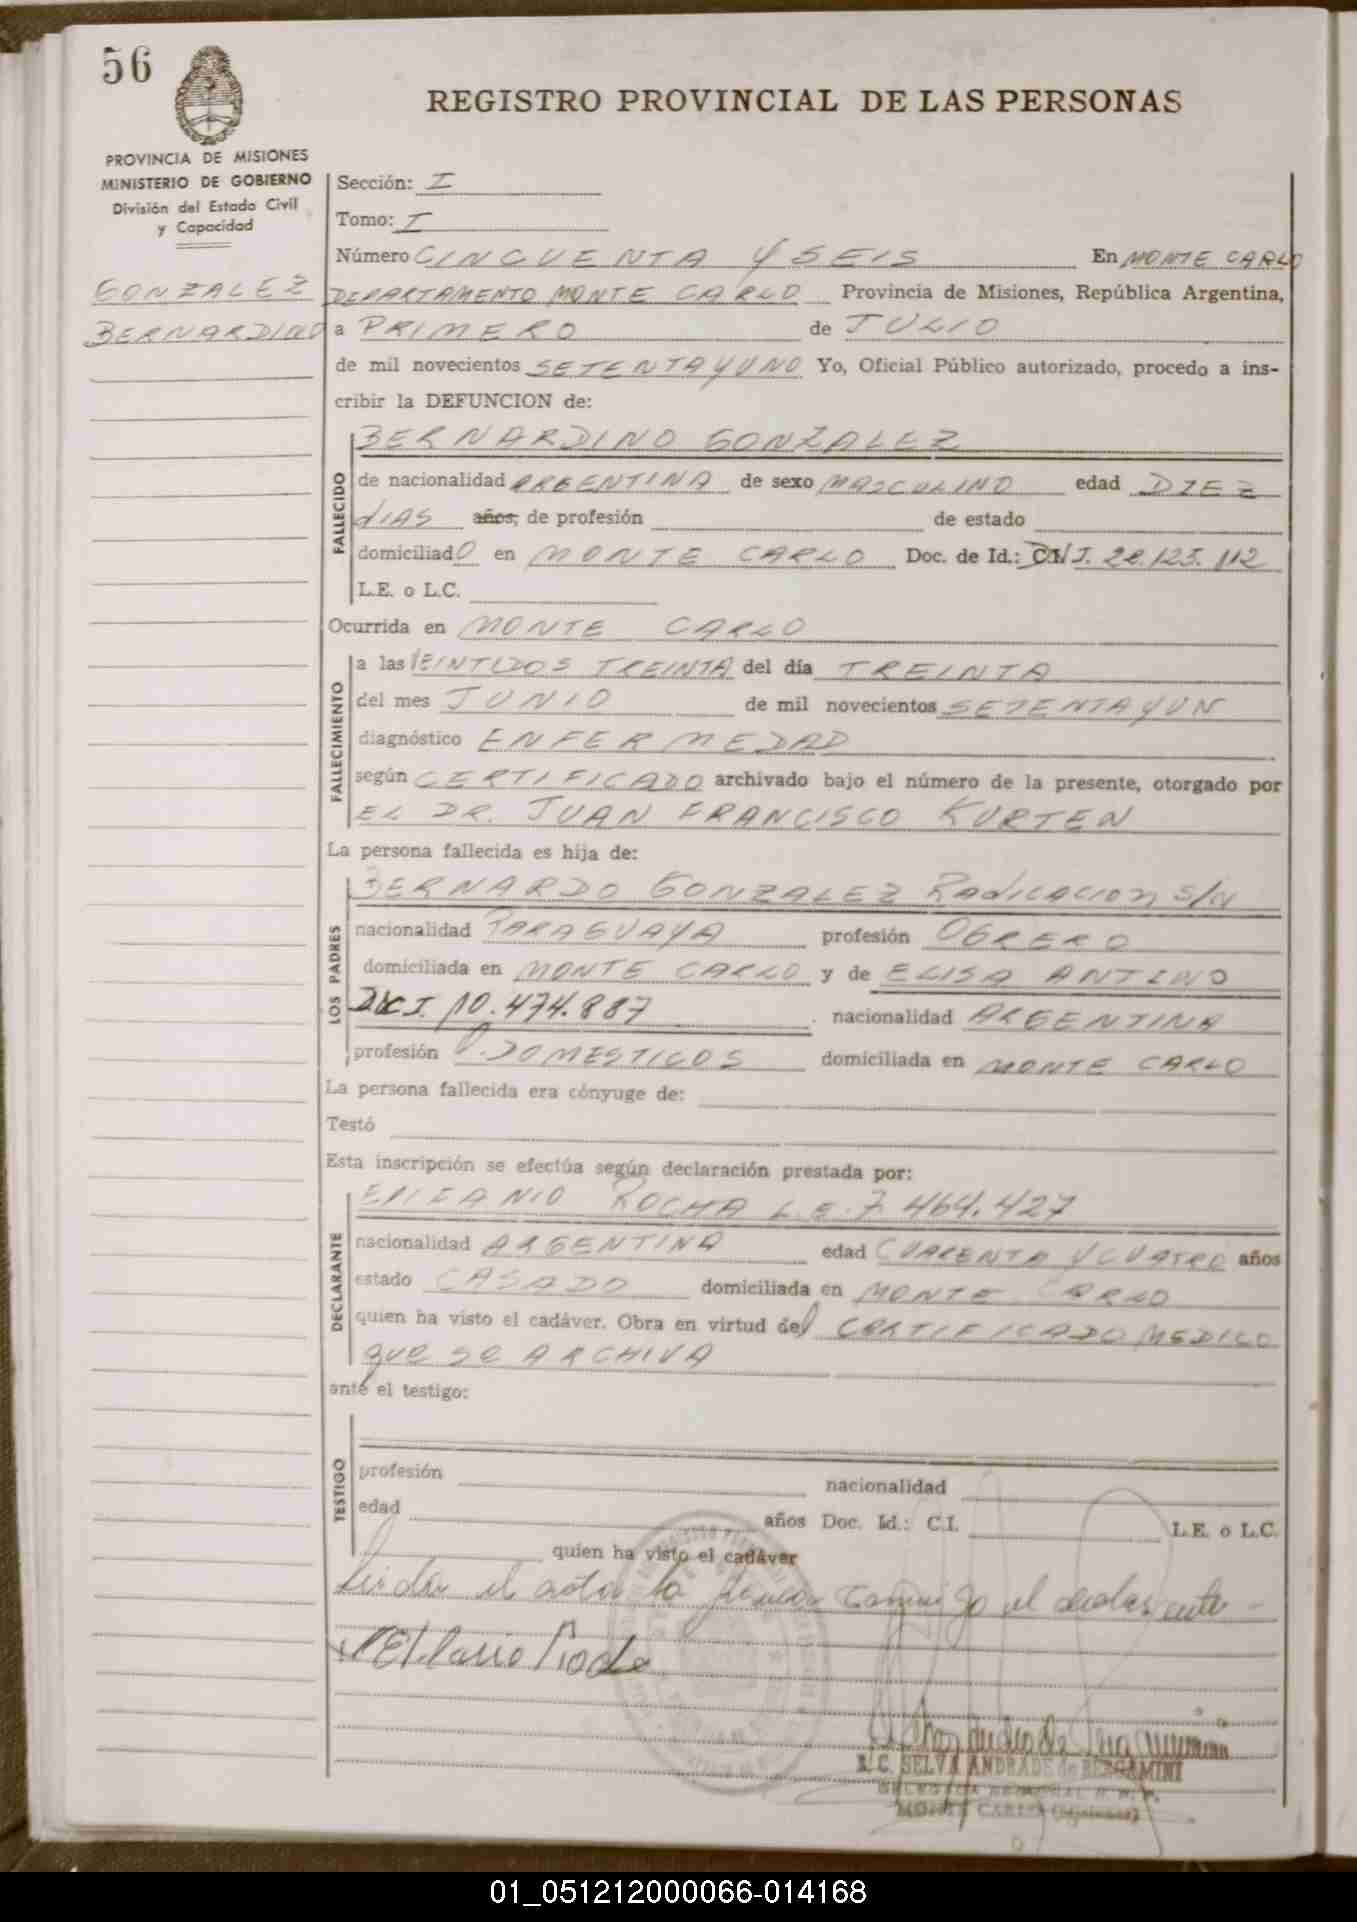 56
REGISTRO PROVINCIAL DE LAS PERSONAS
PROVINCIA DE MISIONES
MINISTERIO DE GOBIERNO
División del Estado Civil
y Capacidad
GONZALEZ
BERNARDINO
Sección: I
Tomo: I
Número CINCUENTA Y SEIS En MONTE CARLO
DEPARTAMENTO MONTE CARLO Provincia de Misiones, República Argentina,
a PRIMERO de JULIO
de mil novecientos SETENTA Y UNO Yo, Oficial Público autorizado, procedo a ins-
cribir la DEFUNCION de:
FALLECIDO
BERNARDINO GONZALEZ
de nacionalidad ARGENTINA de sexo MASCULINO edad DIEZ
DIAS años, de profesión de estado
domiciliado en MONTE CARLO Doc. de Id.: D.N.I. 22.125.112
L.E. o L.C.
Ocurrida en MONTE CARLO
FALLECIMIENTO
a las VEINTIDOS TREINTA del día TREINTA
del mes JUNIO de mil novecientos SETENTA Y UN
diagnóstico ENFERMEDAD
según CERTIFICADO archivado bajo el número de la presente, otorgado por
EL DR. JUAN FRANCISCO KURTEN
La persona fallecida es hija de:
LOS PADRES
BERNARDO GONZALEZ Radicacion s/n
nacionalidad PARAGUAYA profesión OBRERO
domiciliada en MONTE CARLO y de ELISA ANTUNO
10.474.887 nacionalidad ARGENTINA
profesión Q. DOMESTICOS domiciliada en MONTE CARLO
La persona fallecida era cónyuge de:
Testó
Esta inscripción se efectúa según declaración prestada por:
DECLARANTE
EPIFANIO ROCHA L.E. 7.464.427
nacionalidad ARGENTINA edad CUARENTA Y CUATRO años
estado CASADO domiciliada en MONTE CARLO
quien ha visto el cadáver. Obra en virtud del CERTIFICADO MEDICO
que se ARCHIVA
ante el testigo:
TESTIGO
profesión nacionalidad
edad años Doc. Id.: C.I. L.E. o L.C.
quien ha visto el cadáver
Leida el acta la firma conmigo el declarante
SELVA ANDRADE de BERGAMINI
MONTE CARLO (Misiones)
01_051212000066-014168